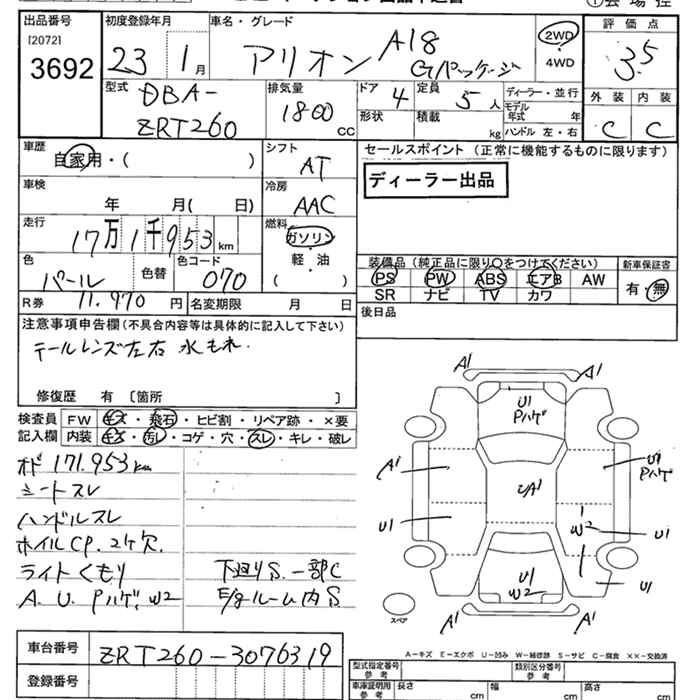 出品番号
[2072]
3692
初度登録年月
23 1月
車名・グレード
アリオン A18
Gパッケージ
2WD
4WD
評価点
3.5
外装 内装
C C
型式
DBA-
ZRT260
排気量
1800 cc
ドア 4
定員 5人
形状
積載 kg
ディーラー・並行
モデル年式 年
ハンドル 左・右
車歴
自家用・( )
シフト
AT
セールスポイント (正常に機能するものに限ります)
ディーラー出品
車検
年 月( 日)
冷房
AAC
走行
17万1千953km
燃料
ガソリン
軽・油
( )
色
パール
色替
色コード
070
装備品(純正品に限り○をつけてください)
PS PW ABS エアB AW
SR ナビ TV カワ
新車保証書
有・無
R券 11,970円
名変期限 月 日
後日品
注意事項申告欄(不具合内容等は具体的に記入して下さい)
テールレンズ左右 水もれ
修復歴 有 [箇所 ]
検査員
記入欄
FW キズ・飛石・ヒビ割・リペア跡・×要
内装 キズ・汚レ・コゲ・穴・スレ・キレ・破レ
オド 171,953km
シートスレ
ハンドルスレ
ホイルCP. 2ケ欠.
ライトくもり
A.U.Pハゲ.W2
下廻りS.一部C
E/gルーム内S
A1 A1
U1
Pハゲ
A1
U1
Pハゲ
A1
U1
W2
U1
U1
W2
U1
A1 A1
スペア
A－キズ E－エクボ U－凹み W－補修跡 S－サビ C－腐食 ××－交換済
車台番号
ZRT260-3076319
登録番号
型式指定番号
参考
類別区分番号
参考
車庫証明用
参考
長さ cm
幅 cm
高さ cm